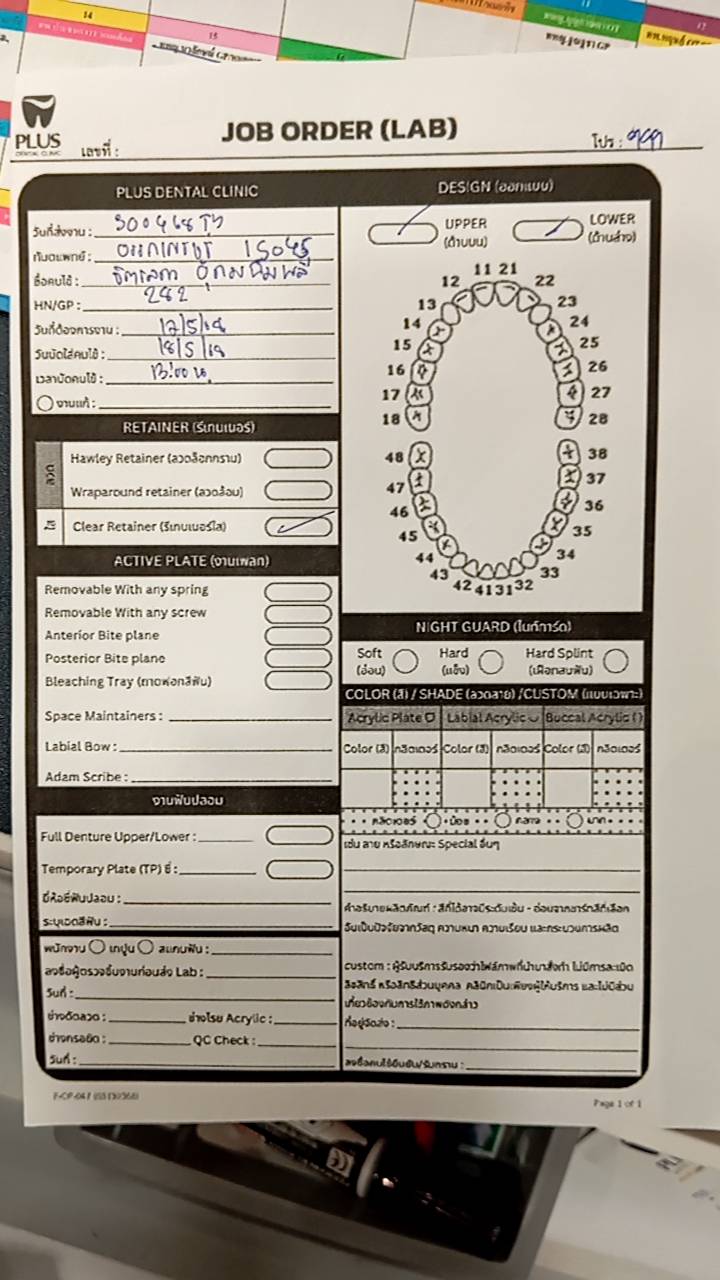 14
15
11
17
PLUS
DENTAL CLINIC
JOB ORDER (LAB)
เลขที่ :
โปร :
PLUS DENTAL CLINIC
วันที่สั่งงาน : 300468
ทันตแพทย์ :
ชื่อคนไข้ :
HN/GP : 282
วันที่ต้องการงาน : 17/5/68
วันนัดใส่คนไข้ : 18/5/68
เวลานัดคนไข้ : 13:00 น.
งานแก้ :
RETAINER (รีเทนเนอร์)
ลวด
Hawley Retainer (ลวดล็อกกราม)
Wraparound retainer (ลวดล้อม)
ใส
Clear Retainer (รีเทนเนอร์ใส)
ACTIVE PLATE (งานเพลท)
Removable With any spring
Removable With any screw
Anterior Bite plane
Posterior Bite plane
Bleaching Tray (ถาดฟอกสีฟัน)
Space Maintainers :
Labial Bow :
Adam Scribe :
งานฟันปลอม
Full Denture Upper/Lower :
Temporary Plate (TP) ซี่ :
ยี่ห้อซี่ฟันปลอม :
ระบุเฉดสีฟัน :
พนักงาน เทปูน สแกนฟัน :
ลงชื่อผู้ตรวจชิ้นงานก่อนส่ง Lab :
วันที่ :
ช่างดัดลวด : ช่างโรย Acrylic :
ช่างกรอขัด : QC Check :
วันที่ :
DESIGN (ออกแบบ)
UPPER
(ด้านบน)
LOWER
(ด้านล่าง)
11 21
12 22
13 23
14 24
15 25
16 26
17 27
18 28
48 38
47 37
46 36
45 35
44 34
43 33
42 41 31 32
NIGHT GUARD (ไนท์การ์ด)
Soft
(อ่อน)
Hard
(แข็ง)
Hard Splint
(เฝือกสบฟัน)
COLOR (สี) / SHADE (ลวดลาย) /CUSTOM (แบบเฉพาะ)
Acrylic Plate Labial Acrylic Buccal Acrylic ()
Color (สี) กลิตเตอร์ Color (สี) กลิตเตอร์ Color (สี) กลิตเตอร์
กลิตเตอร์ น้อย กลาง มาก
เช่น ลาย หรือลักษณะ Special อื่นๆ
คำอธิบายผลิตภัณฑ์ : สีที่ได้อาจมีระดับเข้ม - อ่อนจากชาร์ทสีที่เลือก
อันเป็นปัจจัยจากวัสดุ ความหนา ความเรียบ และกระบวนการผลิต
custom : ผู้รับบริการรับรองว่าไฟล์ภาพที่นำมาสั่งทำ ไม่มีการละเมิด
ลิขสิทธิ์ หรือสิทธิส่วนบุคคล คลินิกเป็นเพียงผู้ให้บริการ และไม่มีส่วน
เกี่ยวข้องกับการใช้ภาพดังกล่าว
ที่อยู่จัดส่ง :
ลงชื่อคนไข้ยืนยัน/รับทราบ :
Page 1 of 1